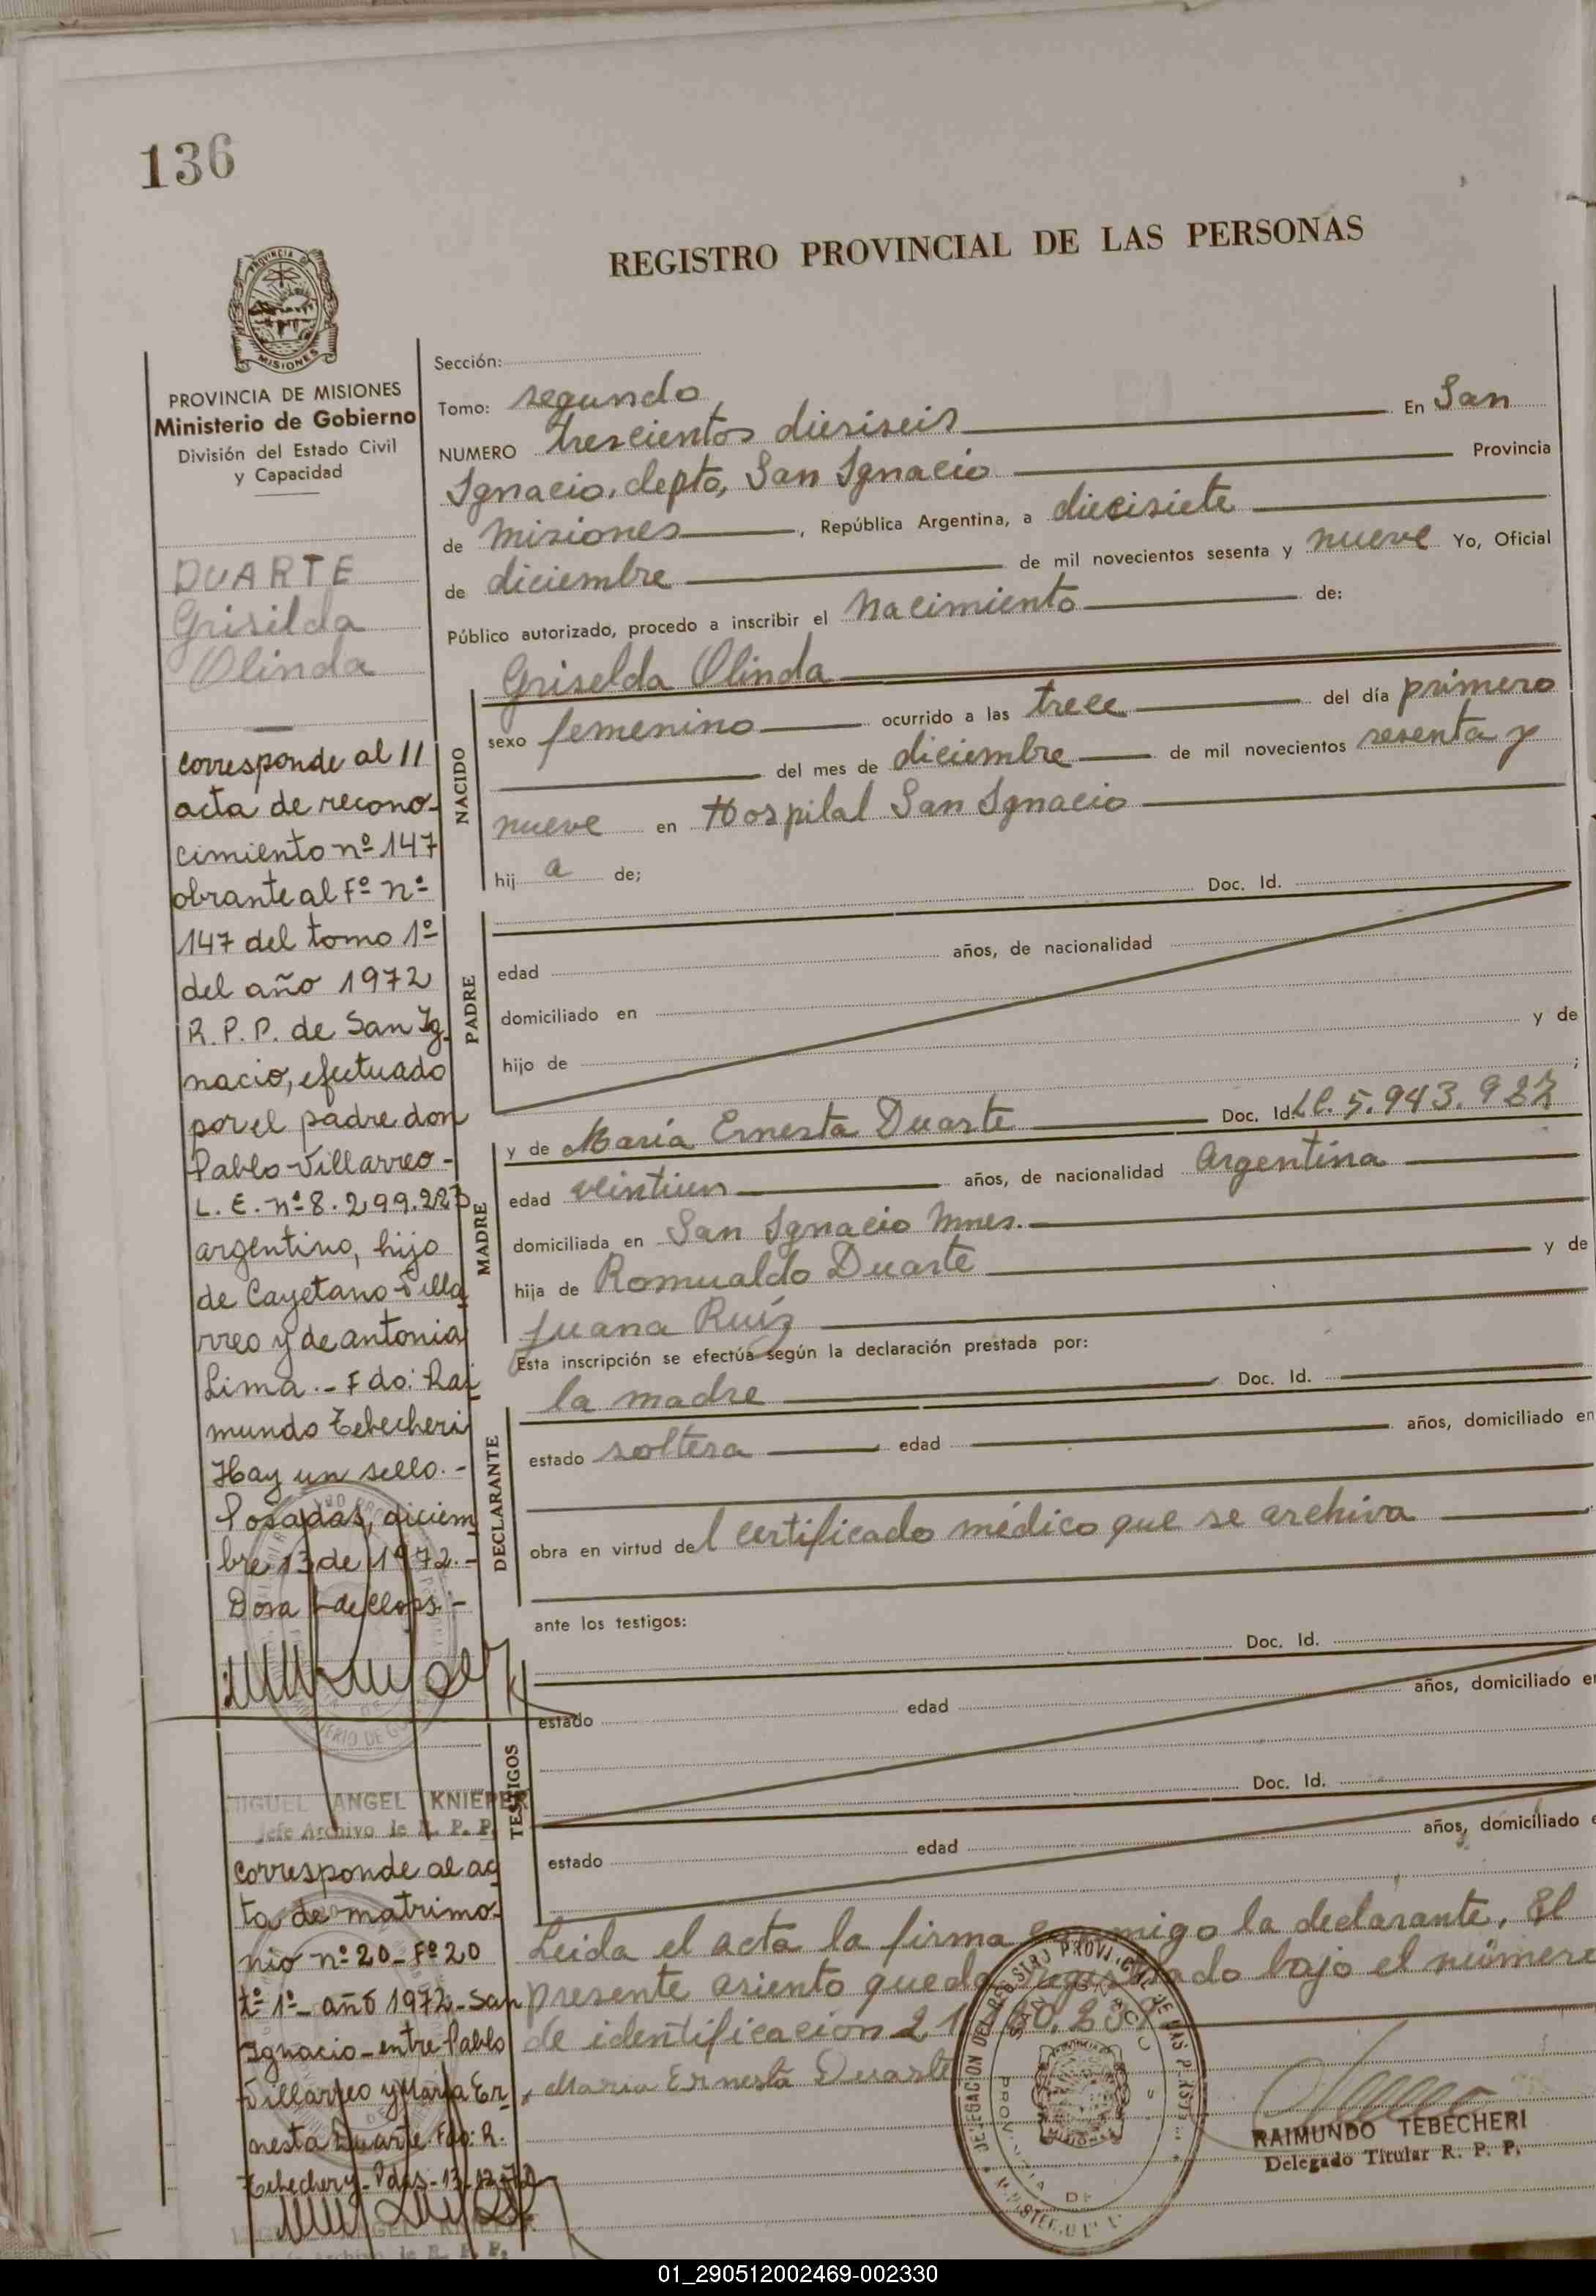 136
REGISTRO PROVINCIAL DE LAS PERSONAS
PROVINCIA DE MISIONES
Ministerio de Gobierno
División del Estado Civil
y Capacidad
DUARTE
Grisilda
Olinda
corresponde al 11
acta de recono-
cimiento nº 147
obrante al Fº nº
147 del tomo 1º
del año 1972
R.P.P. de San Ig
nacio, efectuado
por el padre don
Pablo Villarreo -
L. E. nº 8.299.223
argentino, hijo
de Cayetano Villa
rreo y de antonia
Lima.- Fdo: Rai
mundo Tebecheri
Hay un sello.-
Posadas, diciem
bre 13 de 1972.-
Dora
MIGUEL ANGEL KNIEPER
Jefe Archivo de R. P. P.
corresponde al ac
ta de matrimo-
nio nº 20 - Fº 20
tº 1º - año 1972 - San
Ignacio - entre Pablo
Villarreo y María Er
nesta Duarte. Fdo: R.
Tebechery - Pdas - 13-12-72
Sección:
Tomo: segundo
NUMERO trescientos diesiseis En San
Ignacio, depto, San Ignacio Provincia
de misiones, República Argentina, a diecisiete
de diciembre de mil novecientos sesenta y nueve Yo, Oficial
Público autorizado, procedo a inscribir el nacimiento de:
NACIDO
Griselda Olinda
sexo femenino ocurrido a las trece del día primero
del mes de diciembre de mil novecientos sesenta y
nueve en Hospital San Ignacio
hij a de;
PADRE
Doc. Id.
edad años, de nacionalidad
domiciliado en
hijo de y de
;
MADRE
y de María Ernesta Duarte Doc. Id. LC. 5.943.987
edad veintiun años, de nacionalidad Argentina
domiciliada en San Ignacio Mnes.
hija de Romualdo Duarte y de
Juana Ruíz
Esta inscripción se efectúa según la declaración prestada por:
DECLARANTE
la madre Doc. Id.
estado soltera edad años, domiciliado en
obra en virtud del certificado médico que se archiva
ante los testigos:
TESTIGOS
Doc. Id.
estado edad años, domiciliado en
Doc. Id.
estado edad años, domiciliado
Leida el acta la firma conmigo la declarante. El
presente asiento queda registrado bajo el número
de identificación
Maria Ernesta Duarte
RAIMUNDO TEBECHERI
Delegado Titular R. P. P.
01_290512002469-002330